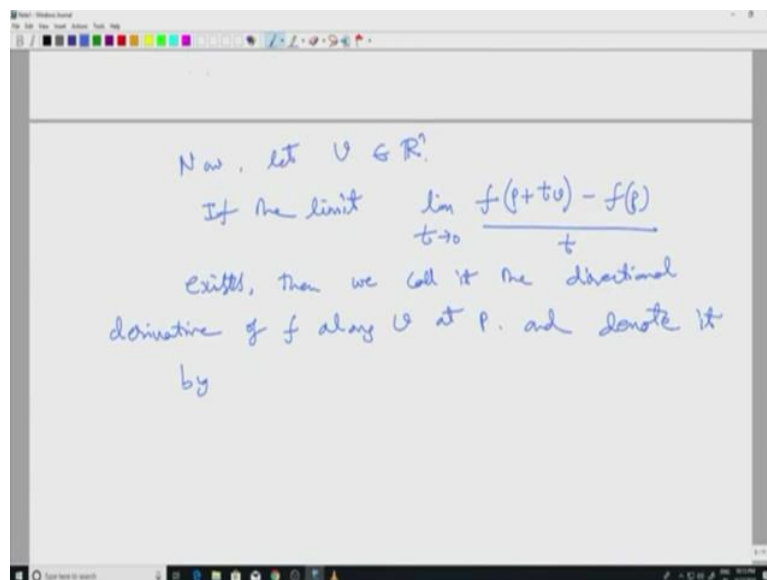 Note1 - Windows Journal
File Edit View Insert Actions Tools Help
Now, let v ∈ ℝⁿ.
If the limit lim_{t→0} \frac{f(p+tv) - f(p)}{t}
exists, then we call it the directional
derivative of f along v at p. and denote it
by
Type here to search